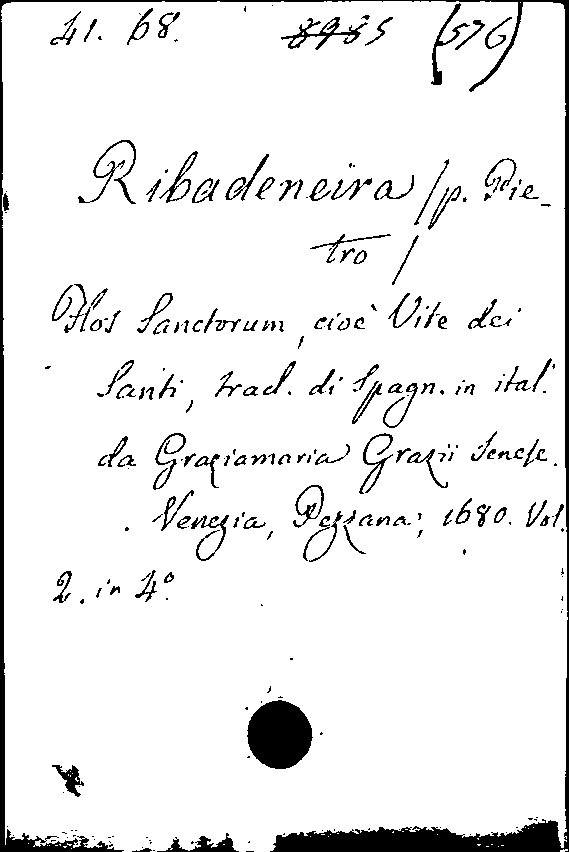 41. 68. 8985 (576)
Ribadeneira /p. Pie-
tro /
Flos Sanctorum, cioè Vite dei
Santi, trad. di Spagn. in ital.
da Graziamaria Grazii Senese.
Venezia, Pezzana, 1680. Vol.
2. in 4º